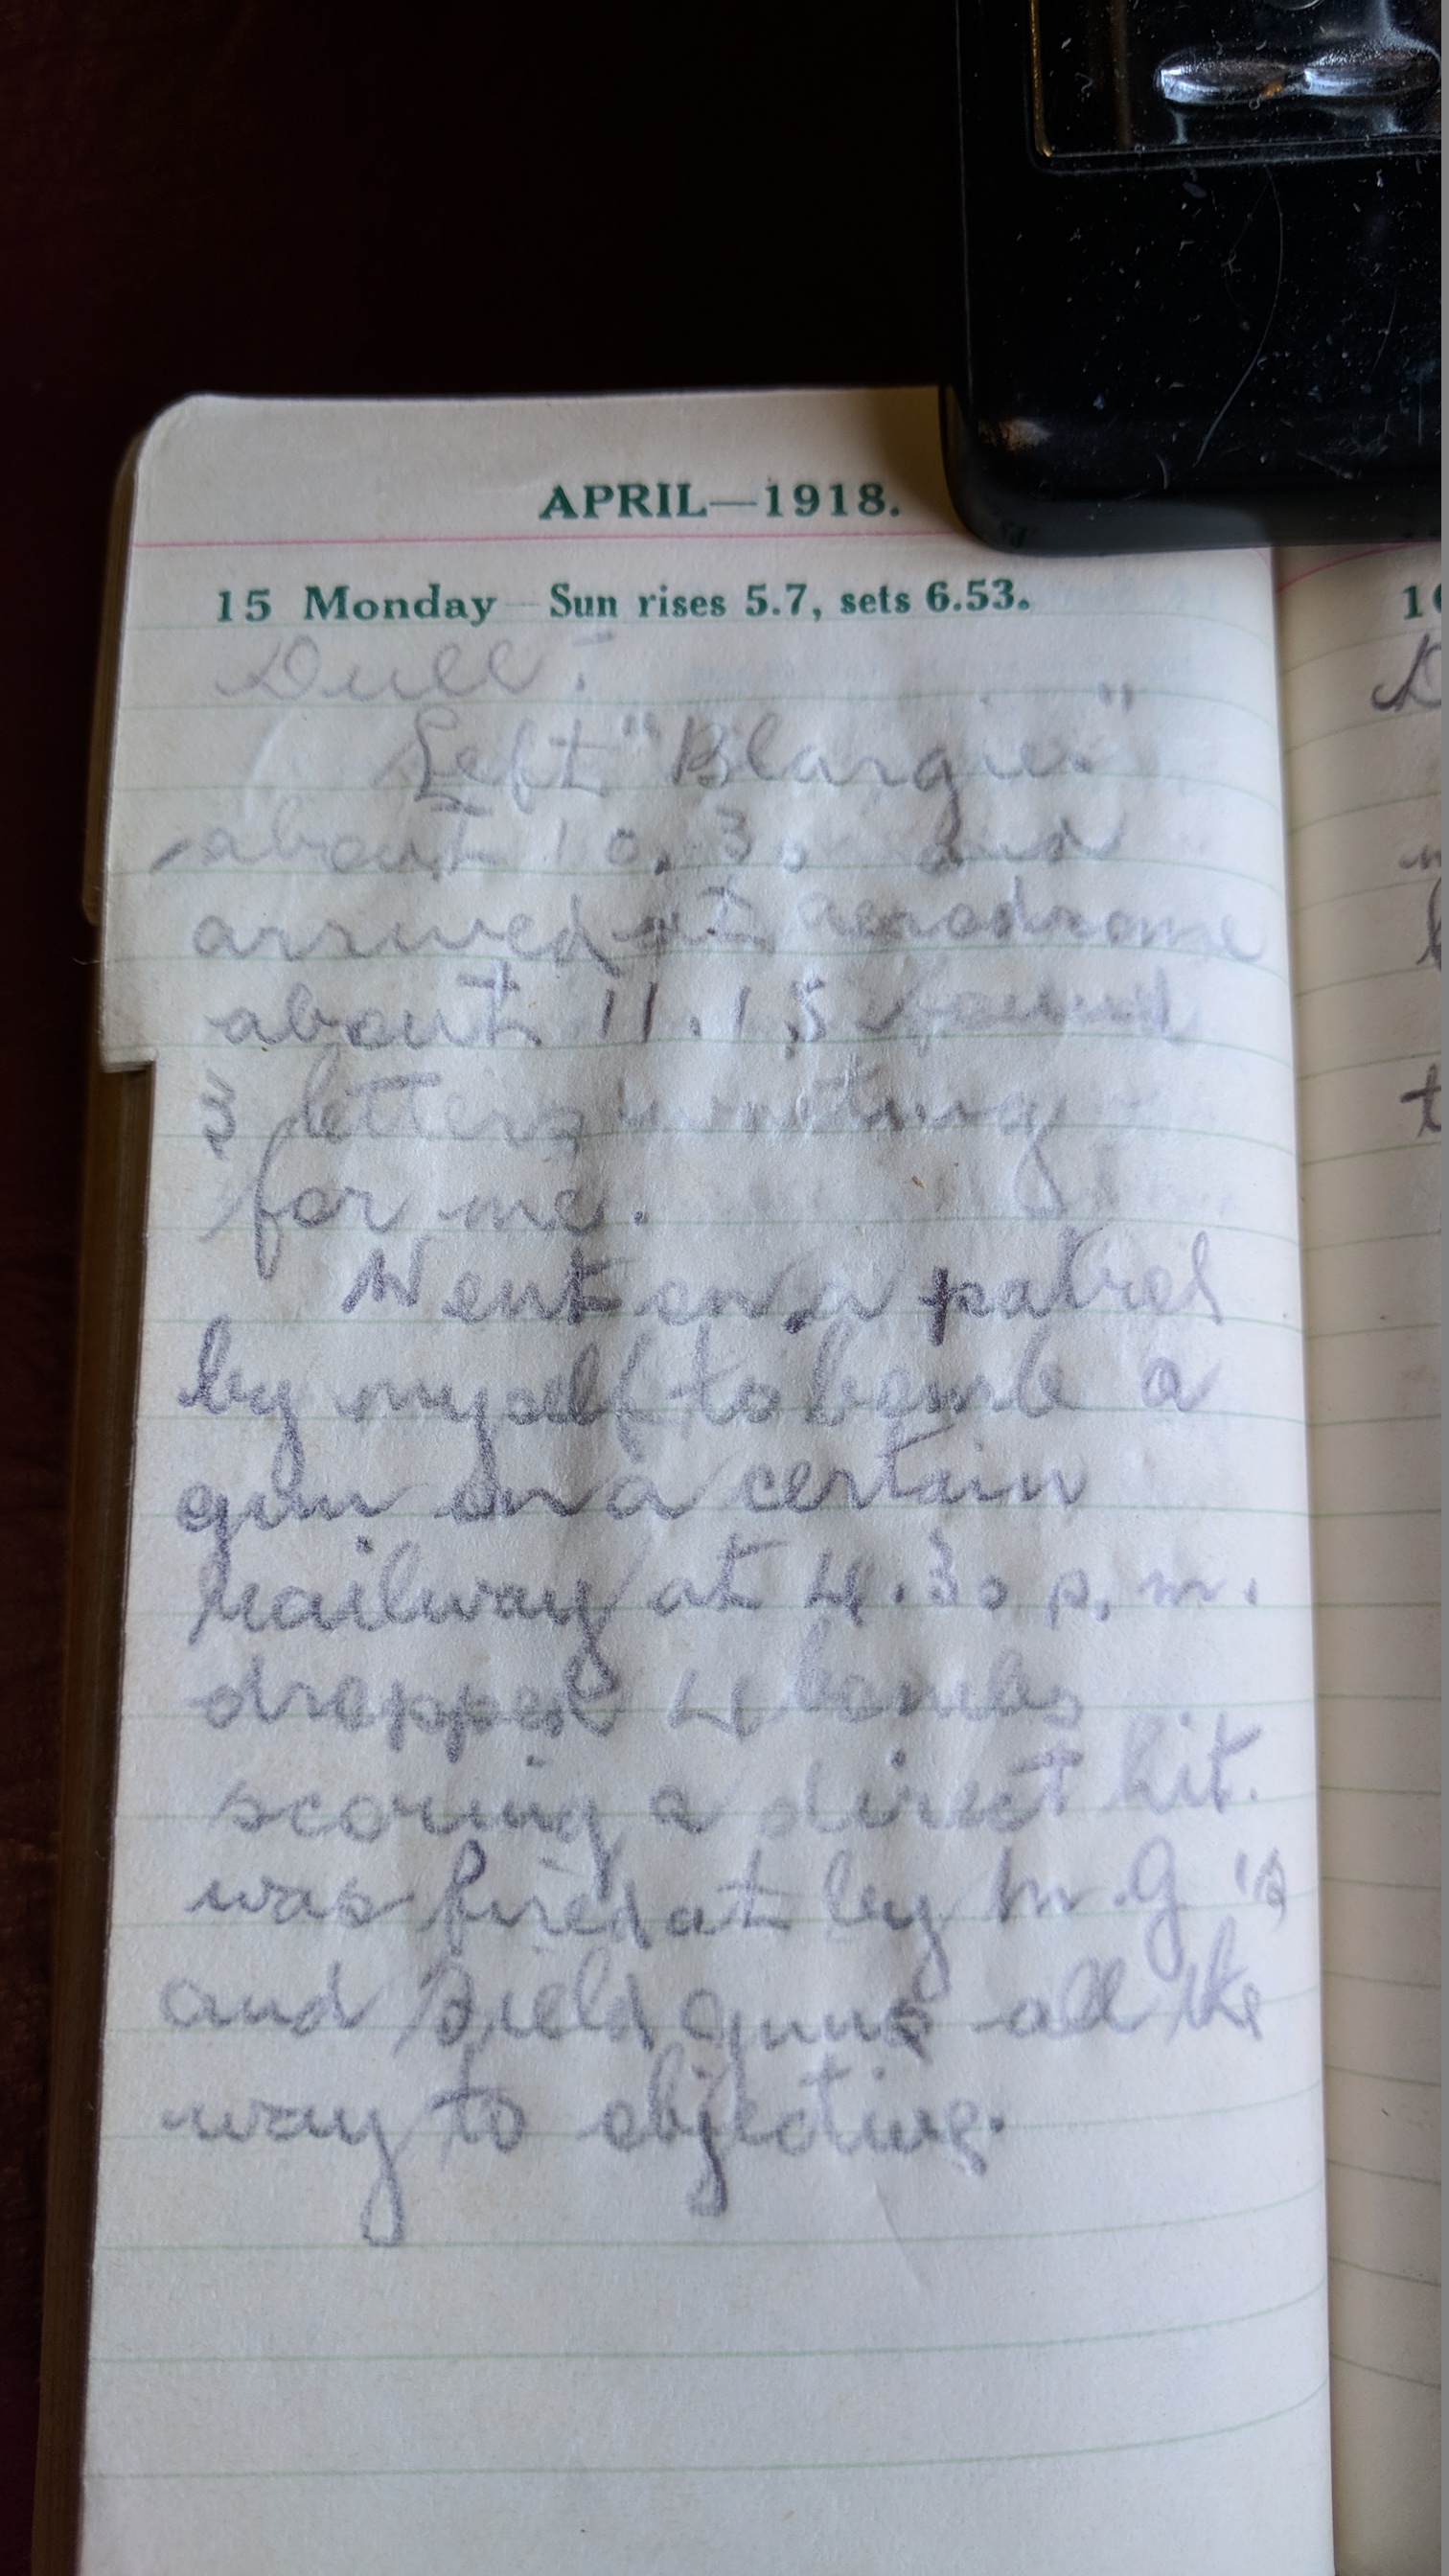 APRIL—1918.
15 Monday — Sun rises 5.7, sets 6.53.
Dull:-
Left "Blargies"
about 10.30 and
arrived at aerodrome
about 11.15 found
3 letters waiting
for me.
Went on a patrol
by myself to bomb a
gun on a certain
railway at 4.30 p.m.
dropped 4 bombs
scoring a direct hit.
was fired at by M.G's
and field guns all the
way to objective.